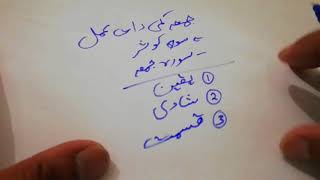 جمعہ کی رات عمل
سورہ کوثر
سورہ جمعہ
① یقین
② شادی
③ قسمت